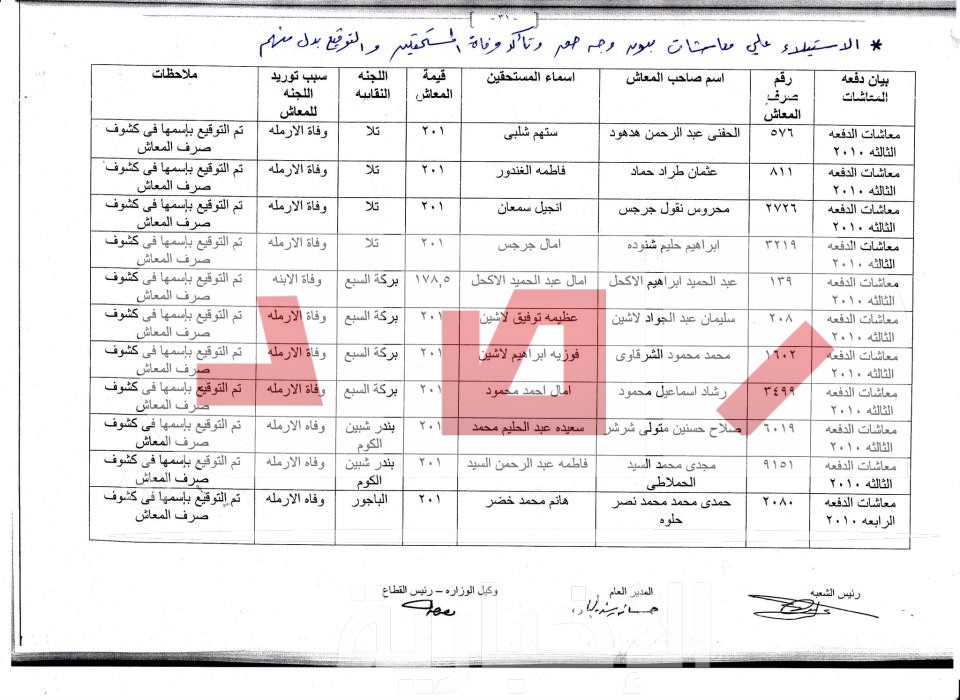 - ٣١ -
* الاستيلاء علي معاشات بدون وجه حق وتأكد وفاة المستحقين والتوقيع بدل منهم
بيان دفعه المعاشات رقم صرف المعاش اسم صاحب المعاش اسماء المستحقين قيمة المعاش اللجنه النقابيه سبب توريد اللجنه للمعاش ملاحظات
معاشات الدفعه الثالثه ٢٠١٠ ٥٧٦ الحفنى عبد الرحمن هدهود ستهم شلبى ٢٠١ تلا وفاة الارمله تم التوقيع بإسمها فى كشوف صرف المعاش
معاشات الدفعه الثالثه ٢٠١٠ ٨١١ عثمان طراد حماد فاطمه الغندور ٢٠١ تلا وفاة الارمله تم التوقيع بإسمها فى كشوف صرف المعاش
معاشات الدفعه الثالثه ٢٠١٠ ٢٧٢٦ محروس نقول جرجس انجيل سمعان ٢٠١ تلا وفاة الارمله تم التوقيع بإسمها فى كشوف صرف المعاش
معاشات الدفعه الثالثه ٢٠١٠ ٣٢١٩ ابراهيم حليم شنوده امال جرجس ٢٠١ تلا وفاة الارمله تم التوقيع بإسمها فى كشوف صرف المعاش
معاشات الدفعه الثالثه ٢٠١٠ ١٣٩ عبد الحميد ابراهيم الاكحل امال عبد الحميد الاكحل ١٧٨,٥ بركة السبع وفاة الابنه تم التوقيع بإسمها فى كشوف صرف المعاش
معاشات الدفعه الثالثه ٢٠١٠ ٢٠٨ سليمان عبد الجواد لاشين عظيمه توفيق لاشين ٢٠١ بركة السبع وفاة الارمله تم التوقيع بإسمها فى كشوف صرف المعاش
معاشات الدفعه الثالثه ٢٠١٠ ١٦٠٢ محمد محمود الشرقاوى فوزيه ابراهيم لاشين ٢٠١ بركة السبع وفاة الارمله تم التوقيع بإسمها فى كشوف صرف المعاش
معاشات الدفعه الثالثه ٢٠١٠ ٣٤٩٩ رشاد اسماعيل محمود امال احمد محمود ٢٠١ بركة السبع وفاة الارمله تم التوقيع بإسمها فى كشوف صرف المعاش
معاشات الدفعه الثالثه ٢٠١٠ ٦٠١٩ صلاح حسنين متولى شرشر سعيده عبد الحليم محمد ٢٠١ بندر شبين الكوم وفاه الارمله تم التوقيع بإسمها فى كشوف صرف المعاش
معاشات الدفعه الثالثه ٢٠١٠ ٩١٥١ مجدى محمد السيد الحملاطي فاطمه عبد الرحمن السيد ٢٠١ بندر شبين الكوم وفاه الارمله تم التوقيع بإسمها فى كشوف صرف المعاش
معاشات الدفعه الرابعه ٢٠١٠ ٢٠٨٠ حمدى محمد محمد نصر حلوه هانم محمد خضر ٢٠١ الباجور وفاه الارمله تم التوقيع بإسمها فى كشوف صرف المعاش
رئيس الشعبه المدير العام وكيل الوزاره – رئيس القطاع
رصد
الإخبارية